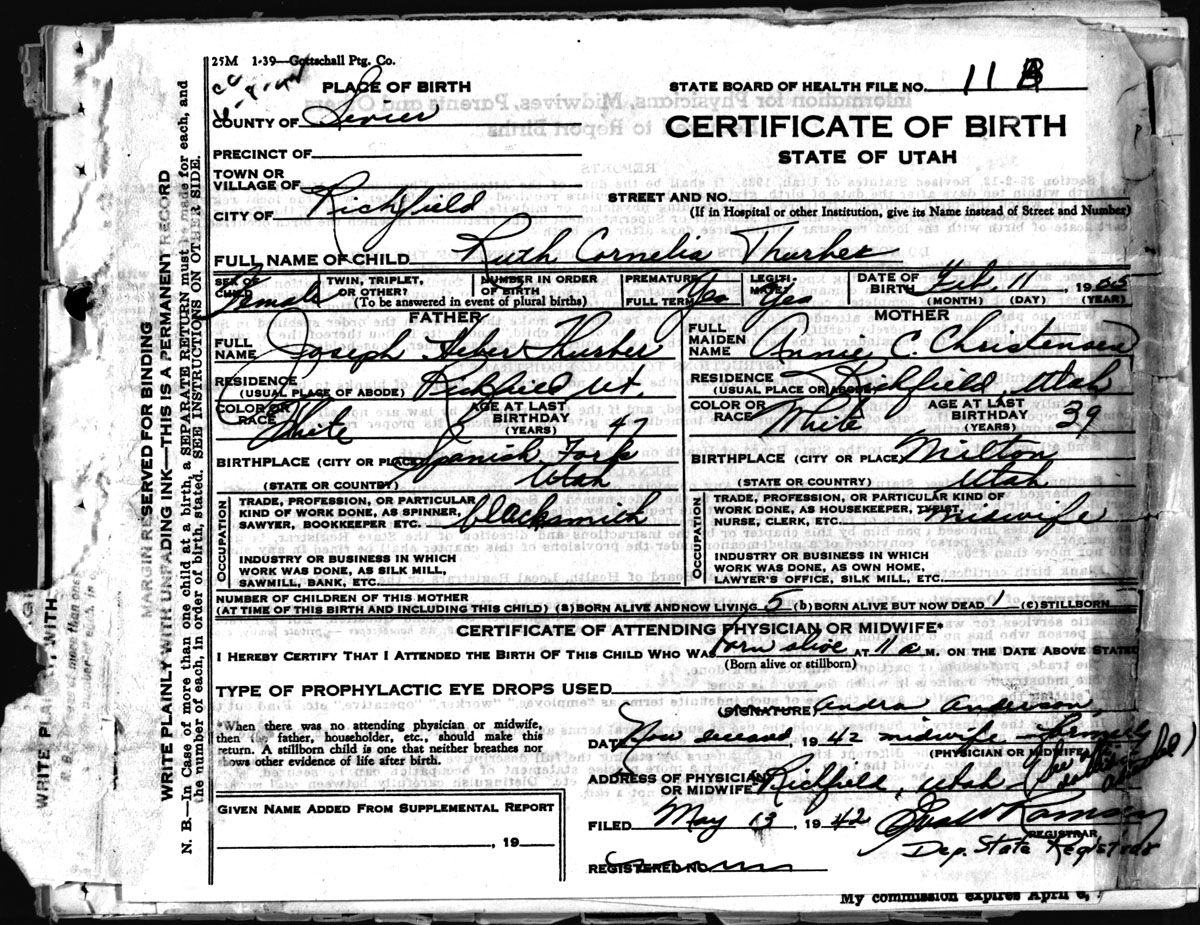 25M 1-39—Gottschall Ptg. Co.
PLACE OF BIRTH
STATE BOARD OF HEALTH FILE NO. 11 B
COUNTY OF Sevier
CERTIFICATE OF BIRTH
PRECINCT OF
STATE OF UTAH
TOWN OR
VILLAGE OF
STREET AND NO.
CITY OF Richfield
(If in Hospital or other Institution, give its Name instead of Street and Number)
FULL NAME OF CHILD Ruth Cornelia Thurber
SEX OF CHILD Female
TWIN, TRIPLET, OR OTHER?
NUMBER IN ORDER OF BIRTH
(To be answered in event of plural births)
PREMATURE
FULL TERM Yes
LEGITI-MATE? Yes
DATE OF BIRTH Feb 11, 1905
(MONTH) (DAY) (YEAR)
FATHER
MOTHER
FULL NAME Joseph Heber Thurber
FULL MAIDEN NAME Annie C. Christensen
RESIDENCE (USUAL PLACE OF ABODE) Richfield Ut.
RESIDENCE (USUAL PLACE OR ABODE) Richfield Utah
COLOR OR RACE White
AGE AT LAST BIRTHDAY (YEARS) 47
COLOR OR RACE White
AGE AT LAST BIRTHDAY (YEARS) 39
BIRTHPLACE (CITY OR PLACE) Spanish Fork
(STATE OR COUNTRY) Utah
BIRTHPLACE (CITY OR PLACE) Milton
(STATE OR COUNTRY) Utah
OCCUPATION
TRADE, PROFESSION, OR PARTICULAR
KIND OF WORK DONE, AS SPINNER,
SAWYER, BOOKKEEPER ETC. blacksmith
INDUSTRY OR BUSINESS IN WHICH
WORK WAS DONE, AS SILK MILL,
SAWMILL, BANK, ETC.
OCCUPATION
TRADE, PROFESSION, OR PARTICULAR KIND OF
WORK DONE, AS HOUSEKEEPER, TYPIST,
NURSE, CLERK, ETC. miswife
INDUSTRY OR BUSINESS IN WHICH
WORK WAS DONE, AS OWN HOME,
LAWYER'S OFFICE, SILK MILL, ETC.
NUMBER OF CHILDREN OF THIS MOTHER
(AT TIME OF THIS BIRTH AND INCLUDING THIS CHILD) (a) BORN ALIVE AND NOW LIVING 5 (b) BORN ALIVE BUT NOW DEAD 1 (c) STILLBORN
CERTIFICATE OF ATTENDING PHYSICIAN OR MIDWIFE*
I HEREBY CERTIFY THAT I ATTENDED THE BIRTH OF THIS CHILD WHO WAS born alive AT 11 a M. ON THE DATE ABOVE STATED
(Born alive or stillborn)
TYPE OF PROPHYLACTIC EYE DROPS USED
*When there was no attending physician or midwife,
then the father, householder, etc., should make this
return. A stillborn child is one that neither breathes nor
shows other evidence of life after birth.
(SIGNATURE) Andra Anderson,
DATE Now deceased, 1942 midwife formerly
(PHYSICIAN OR MIDWIFE)
ADDRESS OF PHYSICIAN
OR MIDWIFE Richfield, Utah
GIVEN NAME ADDED FROM SUPPLEMENTAL REPORT
, 19
FILED May 13, 1942
REGISTRAR
Dep. State Registrar
REGISTERED NO.
My commission expires April 6,
MARGIN RESERVED FOR BINDING
WRITE PLAINLY WITH UNFADING INK—THIS IS A PERMANENT RECORD
N. B.—In Case of more than one child at a birth, a SEPARATE RETURN must be made for each, and
the number of each, in order of birth, stated. SEE INSTRUCTIONS ON OTHER SIDE.